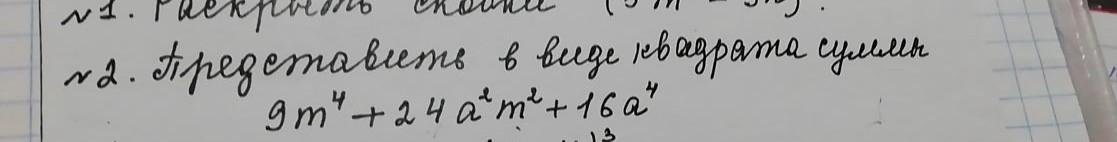 №1. Раскрыть скобки
№2. Представить в виде квадрата суммы
9m⁴ + 24a²m² + 16a⁴